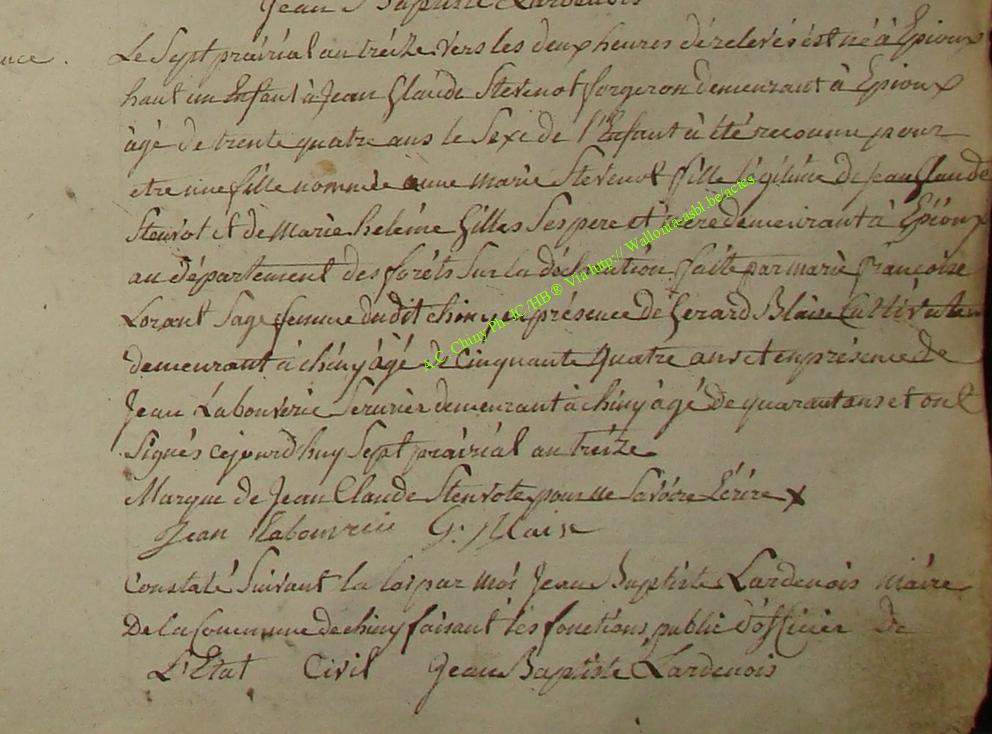 Jean Baptiste Lardenois
nce.
Le Sept prairial an treize vers les deux heures de relevés est né à Epioux
haut un Enfant à Jean Claude Stevenot forgeron demeurant à Epioux
âgé de trente quatre ans le Sexe de l'Enfant à été reconnu pour
etre une fille nommée anne marie Stevenot fille légitime de Jean Claude
Stenvot et de Marie heléme Gilles Ses pere et mere demeurant à Epioux
au département des forêts Sur la déclaration faite par marie françoise
Lorant Sage femme dudit chiny en présence de Gerard Blaise Cultivateur
demeurant à chiny âgé de Cinquante quatre ans et en présence de
Jean Labouverie Serurier demeurant à chiny âgé de quarant ans et ont
Signés cejourd'huy Sept prairial an treize
Marque de Jean Claude Stenvote pour ne Savoire Ecrire X
Jean Labouverie G. Blaise
Constaté Suivant la loi par moi Jean Baptiste Lardenois maire
De la Commune de chiny faisant les fonctions public d'officier De
L'Etat Civil Jean Baptiste Lardenois
A.C. Chiny Ph. JC/HB® Via http:// Wallonia-asbl.be/actes